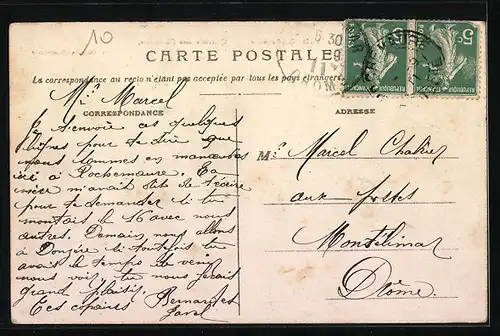 10
CARTE POSTALE
La correspondance au recto n'étant pas acceptée par tous les pays étrangers
CORRESPONDANCE
ADRESSE
5c
5c
REPUBLIQUE FRANÇAISE
REPUBLIQUE FRANÇAISE
Mr Marcel
Je t'envoie ces quelques
lignes pour te dire que
nous sommes en manœuvres
ici à Rochemaure, ta
mère m'avait dit de t'écrire
pour te demander si tu
montais le 16 avec nous
autres. Demain nous allons
à Donzère si toutefois tu
avais le temps de venir
nous voir, tu nous ferais
grand plaisir,
Tes copains Bernard et
Mr Marcel
aux
Montélimar
Drôme